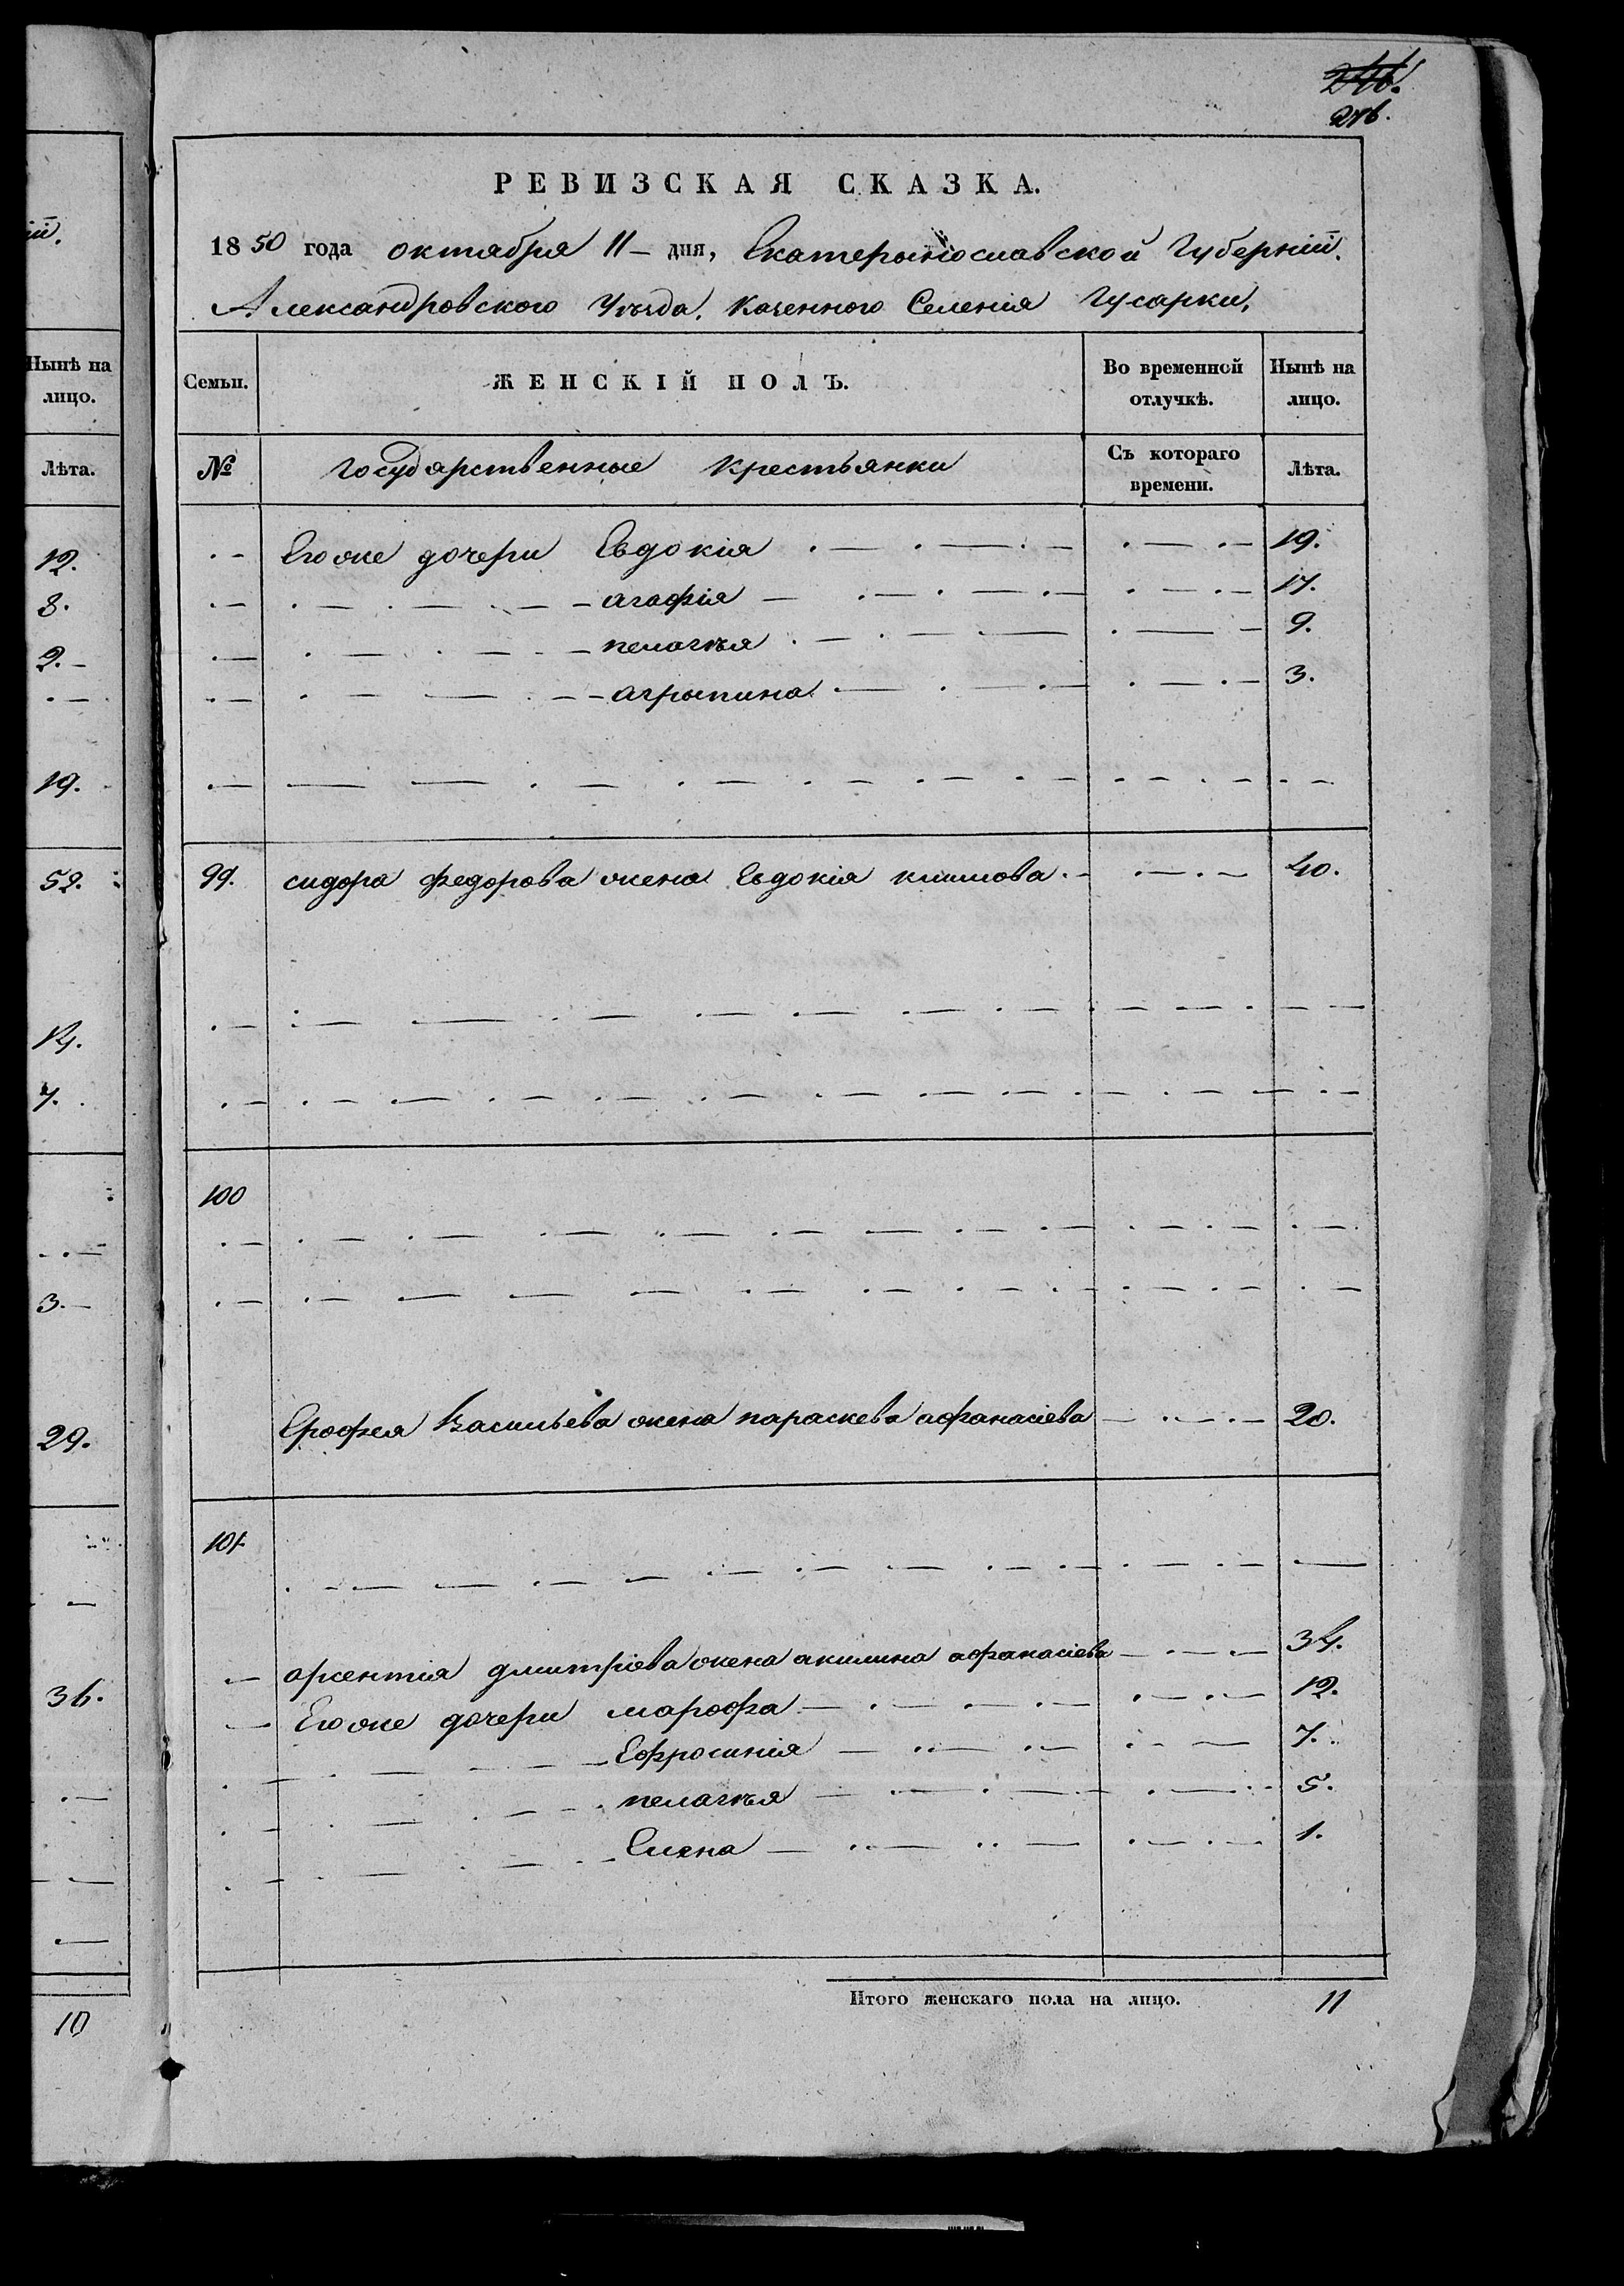 246.
276.
ій.
Нынѣ на
лицо.
Лѣта.
12.
8.
2.
19.
52.
14.
7.
3.
29.
36.
10
РЕВИЗСКАЯ СКАЗКА.
1850 года октября 11 дня, Екатерынославской Губерніи.
Александровского Уѣзда, Казенного Селенія Гусарки,
Семьи. ЖЕНСКІЙ ПОЛЪ. Во временной отлучкѣ. Нынѣ на лицо.
№ Государственные Крестьянки Съ котораго времени. Лѣта.
Егоже дочери Евдокія 19.
агафія 17.
пелагѣя 9.
агрыпина 3.
99. сидора федорова жена Евдокія климова 40.
100
Ерофея Васильева жена параскева афанасіева 20.
101
арсентія дмитріева жена акилина афанасіева 34.
Егоже дочери марфа 12.
Ефросинія 7.
пелагѣя 5.
Елена 1.
Итого женскаго пола на лицо. 11